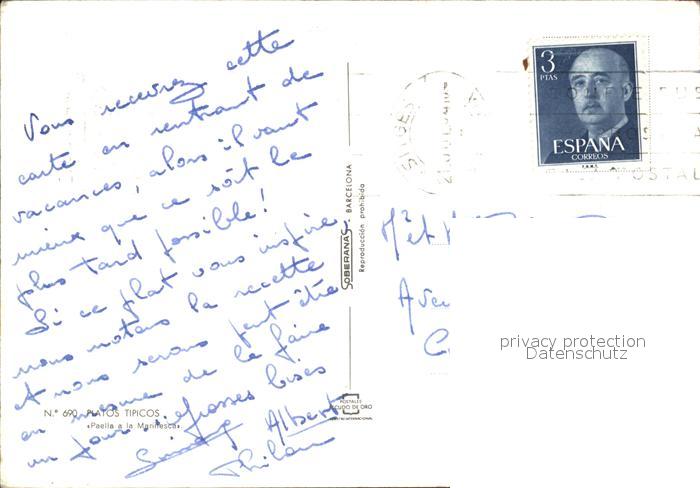 Vous recevrez cette
carte en rentrant de
vacances, alors il vaut
mieux que ce soit le
plus tard possible!
Si ce plat vous inspire
nous notons la recette
et nous serons peut être
en mesure de la faire
un jour. Grosses bises
Albert
N.º 690 PLATOS TIPICOS
«Paella a la Marinesca».
SOBERANAS - BARCELONA
Reproducción prohibida
POSTALES
ESCUDO DE ORO
3
PTAS
ESPAÑA
CORREOS
F.N.M.T.
SITGES
POSTAL
privacy protection
Datenschutz